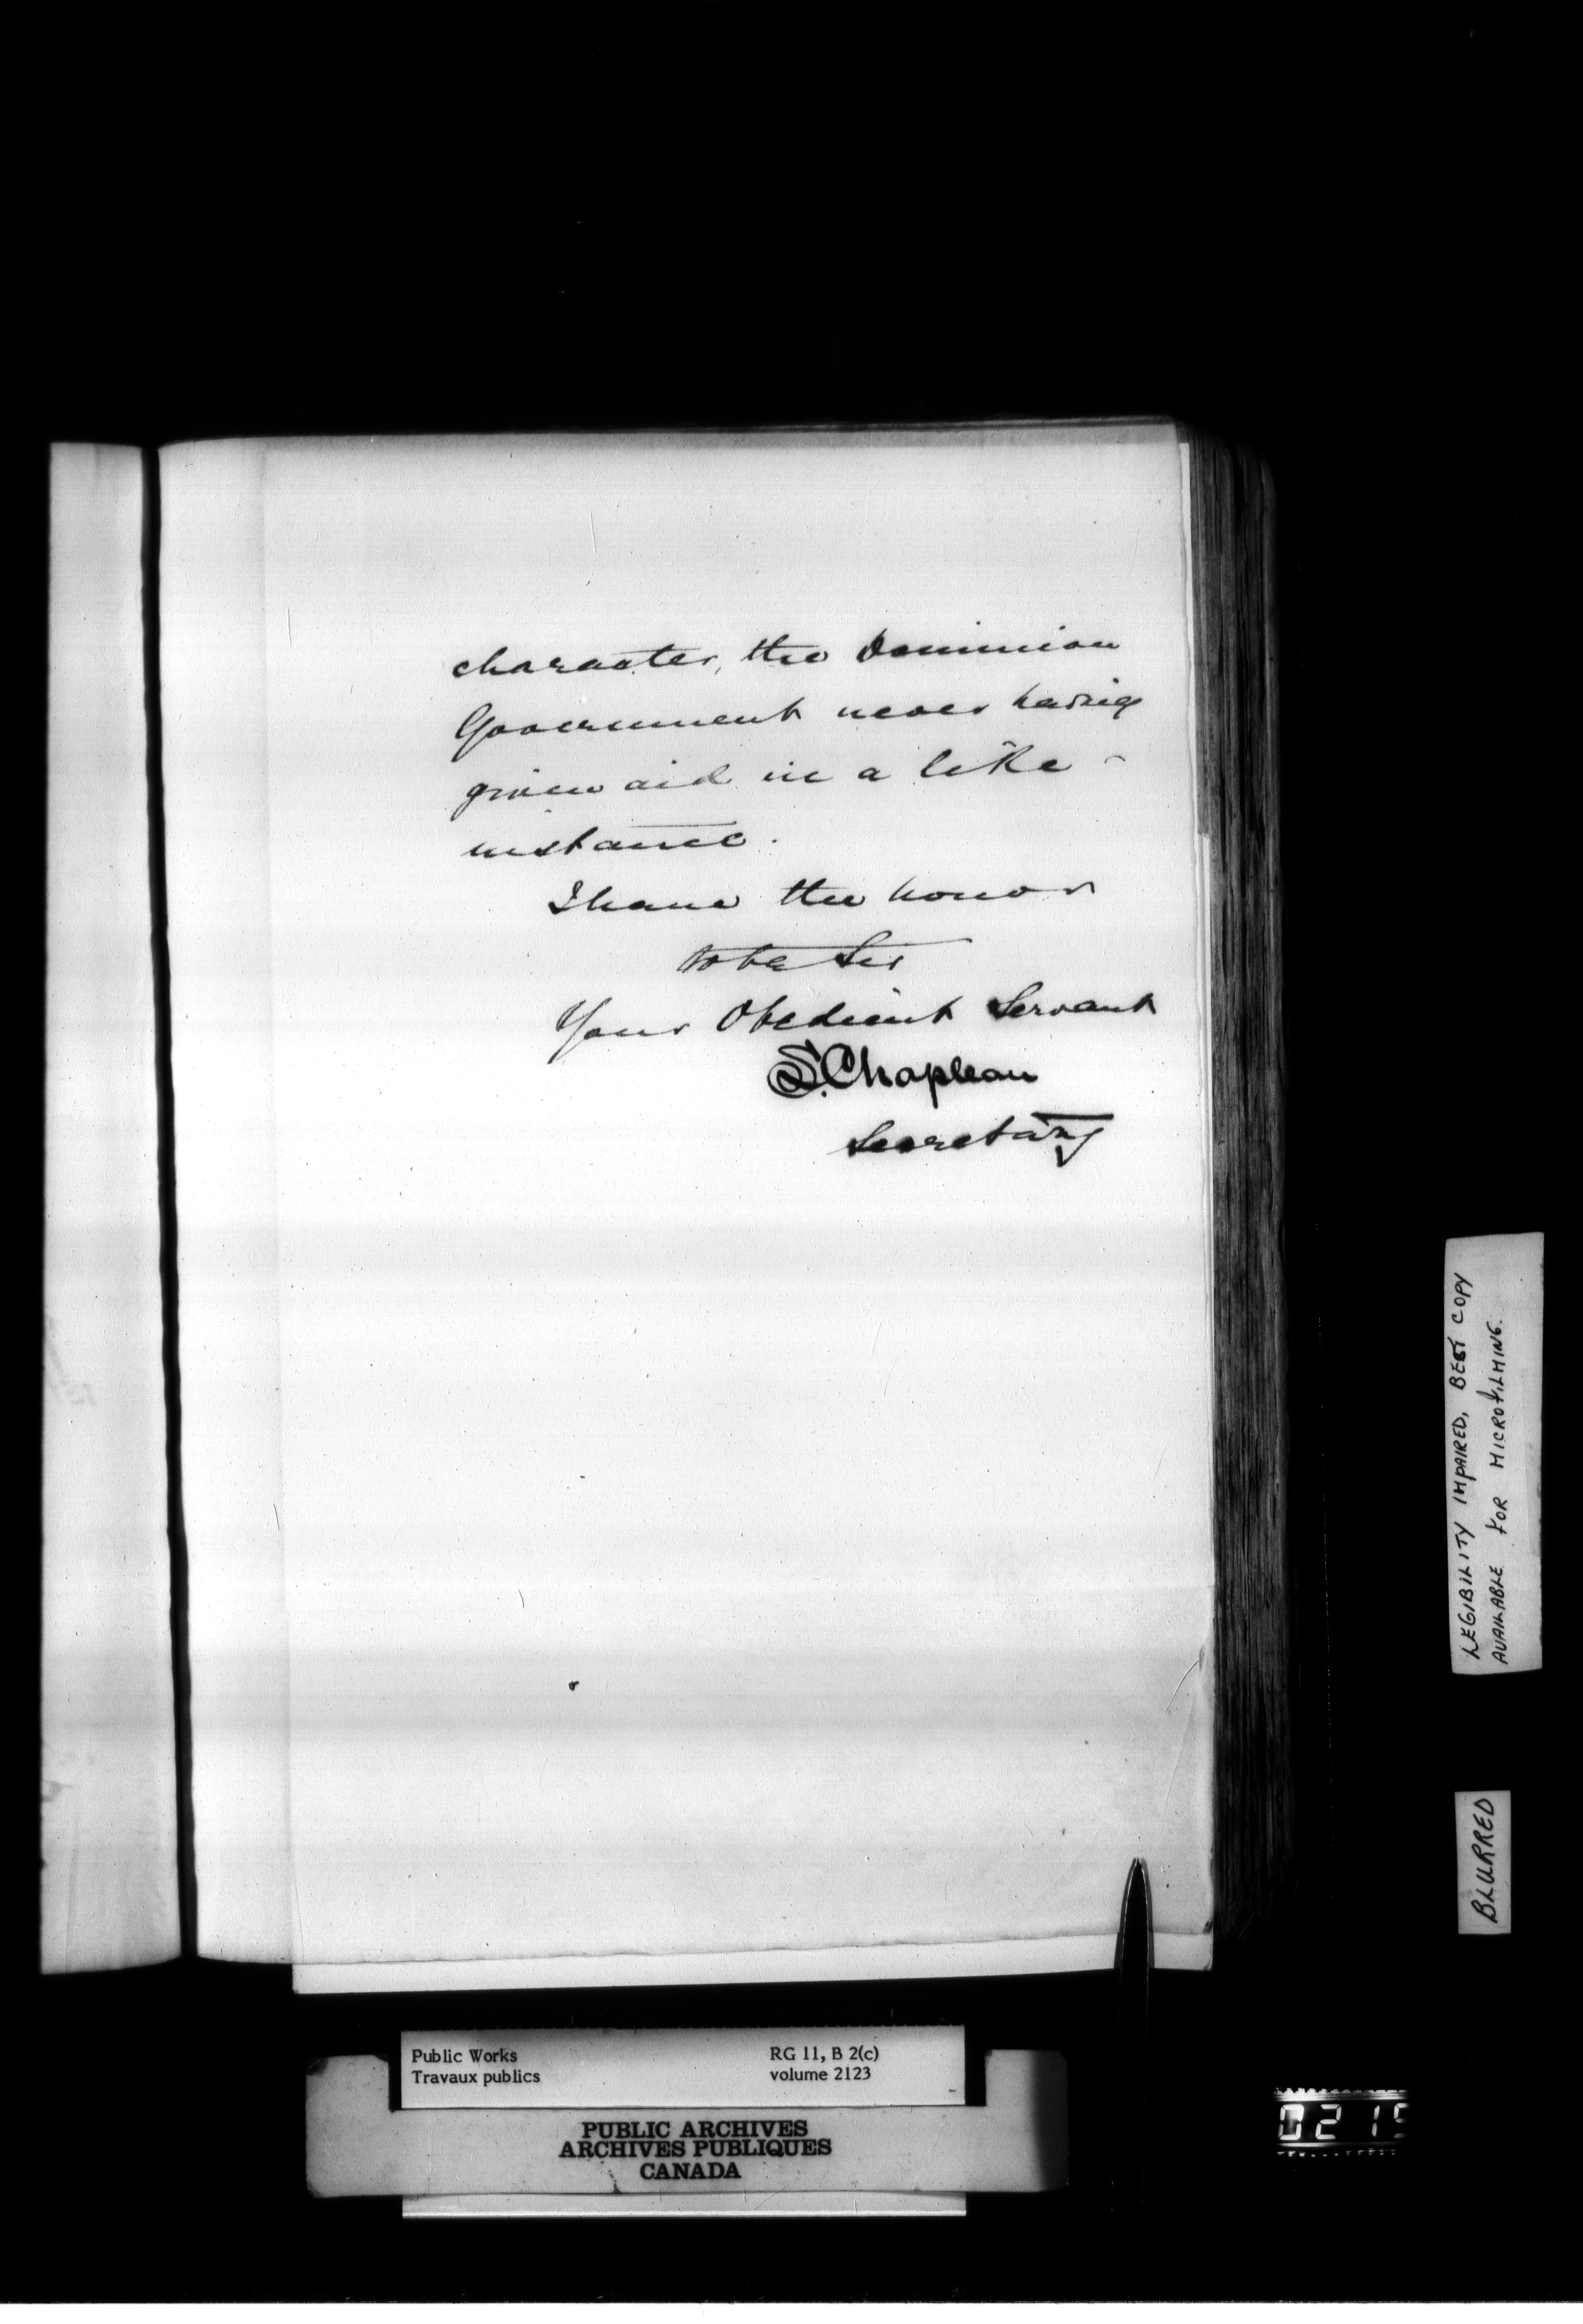 character, the Dominion
Government never having
given aid in a like -
instance.
I have the honor
to be Sir
Your Obedient Servant
S. Chapleau
Secretary
LEGIBILITY IMPAIRED, BEST COPY
AVAILABLE FOR MICROFILMING.
BLURRED
Public Works RG 11, B 2(c)
Travaux publics volume 2123
PUBLIC ARCHIVES
ARCHIVES PUBLIQUES
CANADA
0215